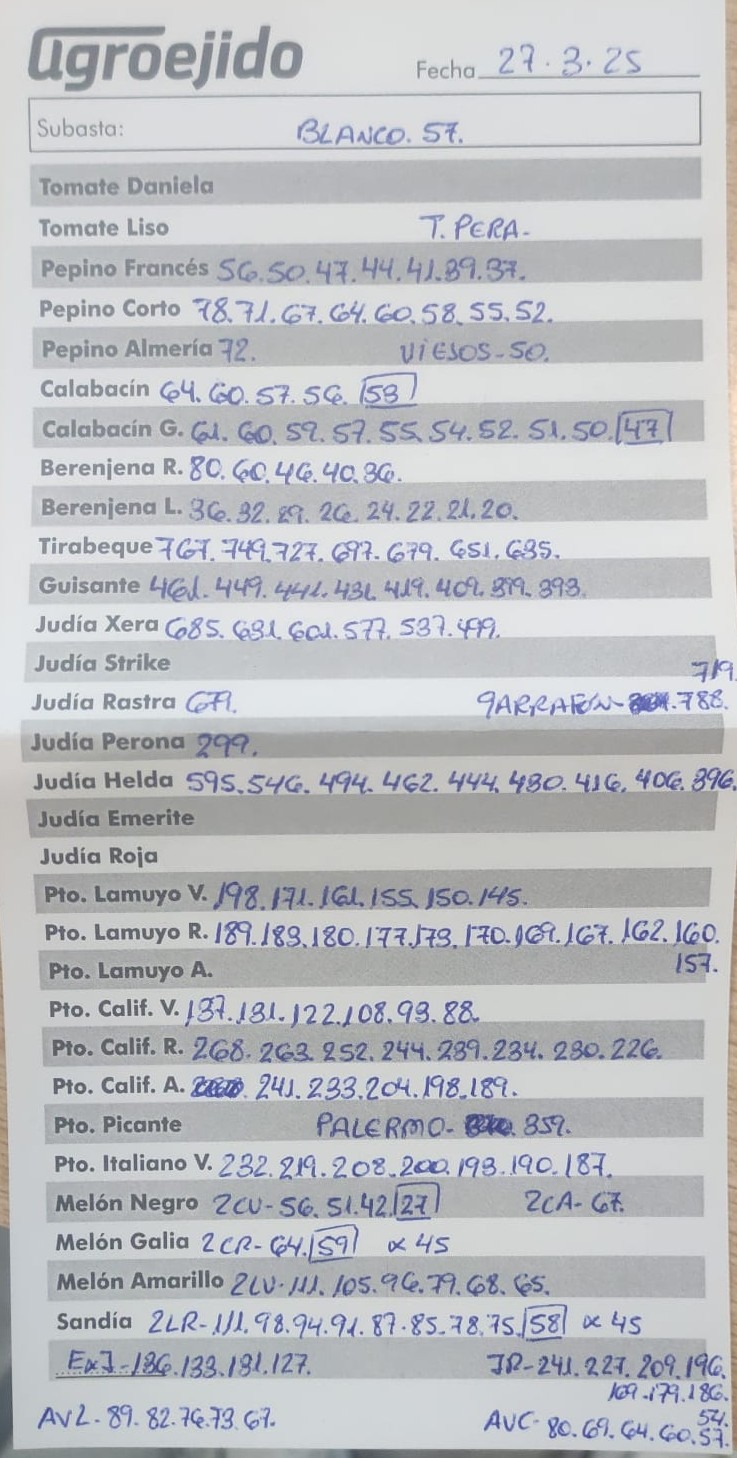 agroejido
Fecha 27.3.25
Subasta: BLANCO. 57.
Tomate Daniela
Tomate Liso T. PERA-
Pepino Francés 56.50.47.44.41.39.37.
Pepino Corto 78.71.67.64.60.58.55.52.
Pepino Almería 72. VIEJOS-50.
Calabacín 64.60.57.56. 53
Calabacín G. 61.60.59.57.55.54.52.51.50. 47
Berenjena R. 80.60.46.40.36.
Berenjena L. 36.32.29.26.24.22.21.20.
Tirabeque 767.749.727.697.679.651.635.
Guisante 461.449.441.431.419.409.399.393.
Judía Xera 685.631.601.577.537.499.
Judía Strike 719.
Judía Rastra 679. GARRAFON- .788.
Judía Perona 299.
Judía Helda 595.546.494.462.444.430.416.406.396.
Judía Emerite
Judía Roja
Pto. Lamuyo V. 198.171.161.155.150.145.
Pto. Lamuyo R. 189.183.180.177.173.170.169.167.162.160.
Pto. Lamuyo A. 157.
Pto. Calif. V. 137.131.122.108.93.88.
Pto. Calif. R. 268.263.252.244.239.234.230.226.
Pto. Calif. A. 241.233.204.198.189.
Pto. Picante PALERMO- 359.
Pto. Italiano V. 232.219.208.200.193.190.187.
Melón Negro 2CU-56.51.42. 27 2CA-67.
Melón Galia 2CR-64. 59 ∝ 45
Melón Amarillo 2LV-111.105.96.79.68.65.
Sandía 2LR-111.98.94.91.87.85.78.75. 58 ∝ 45
ExJ-136.133.131.127. JR-241.227.209.196.
169.179.186.
AVL-89.82.76.73.67. AVC-80.69.64.60.57.
54.